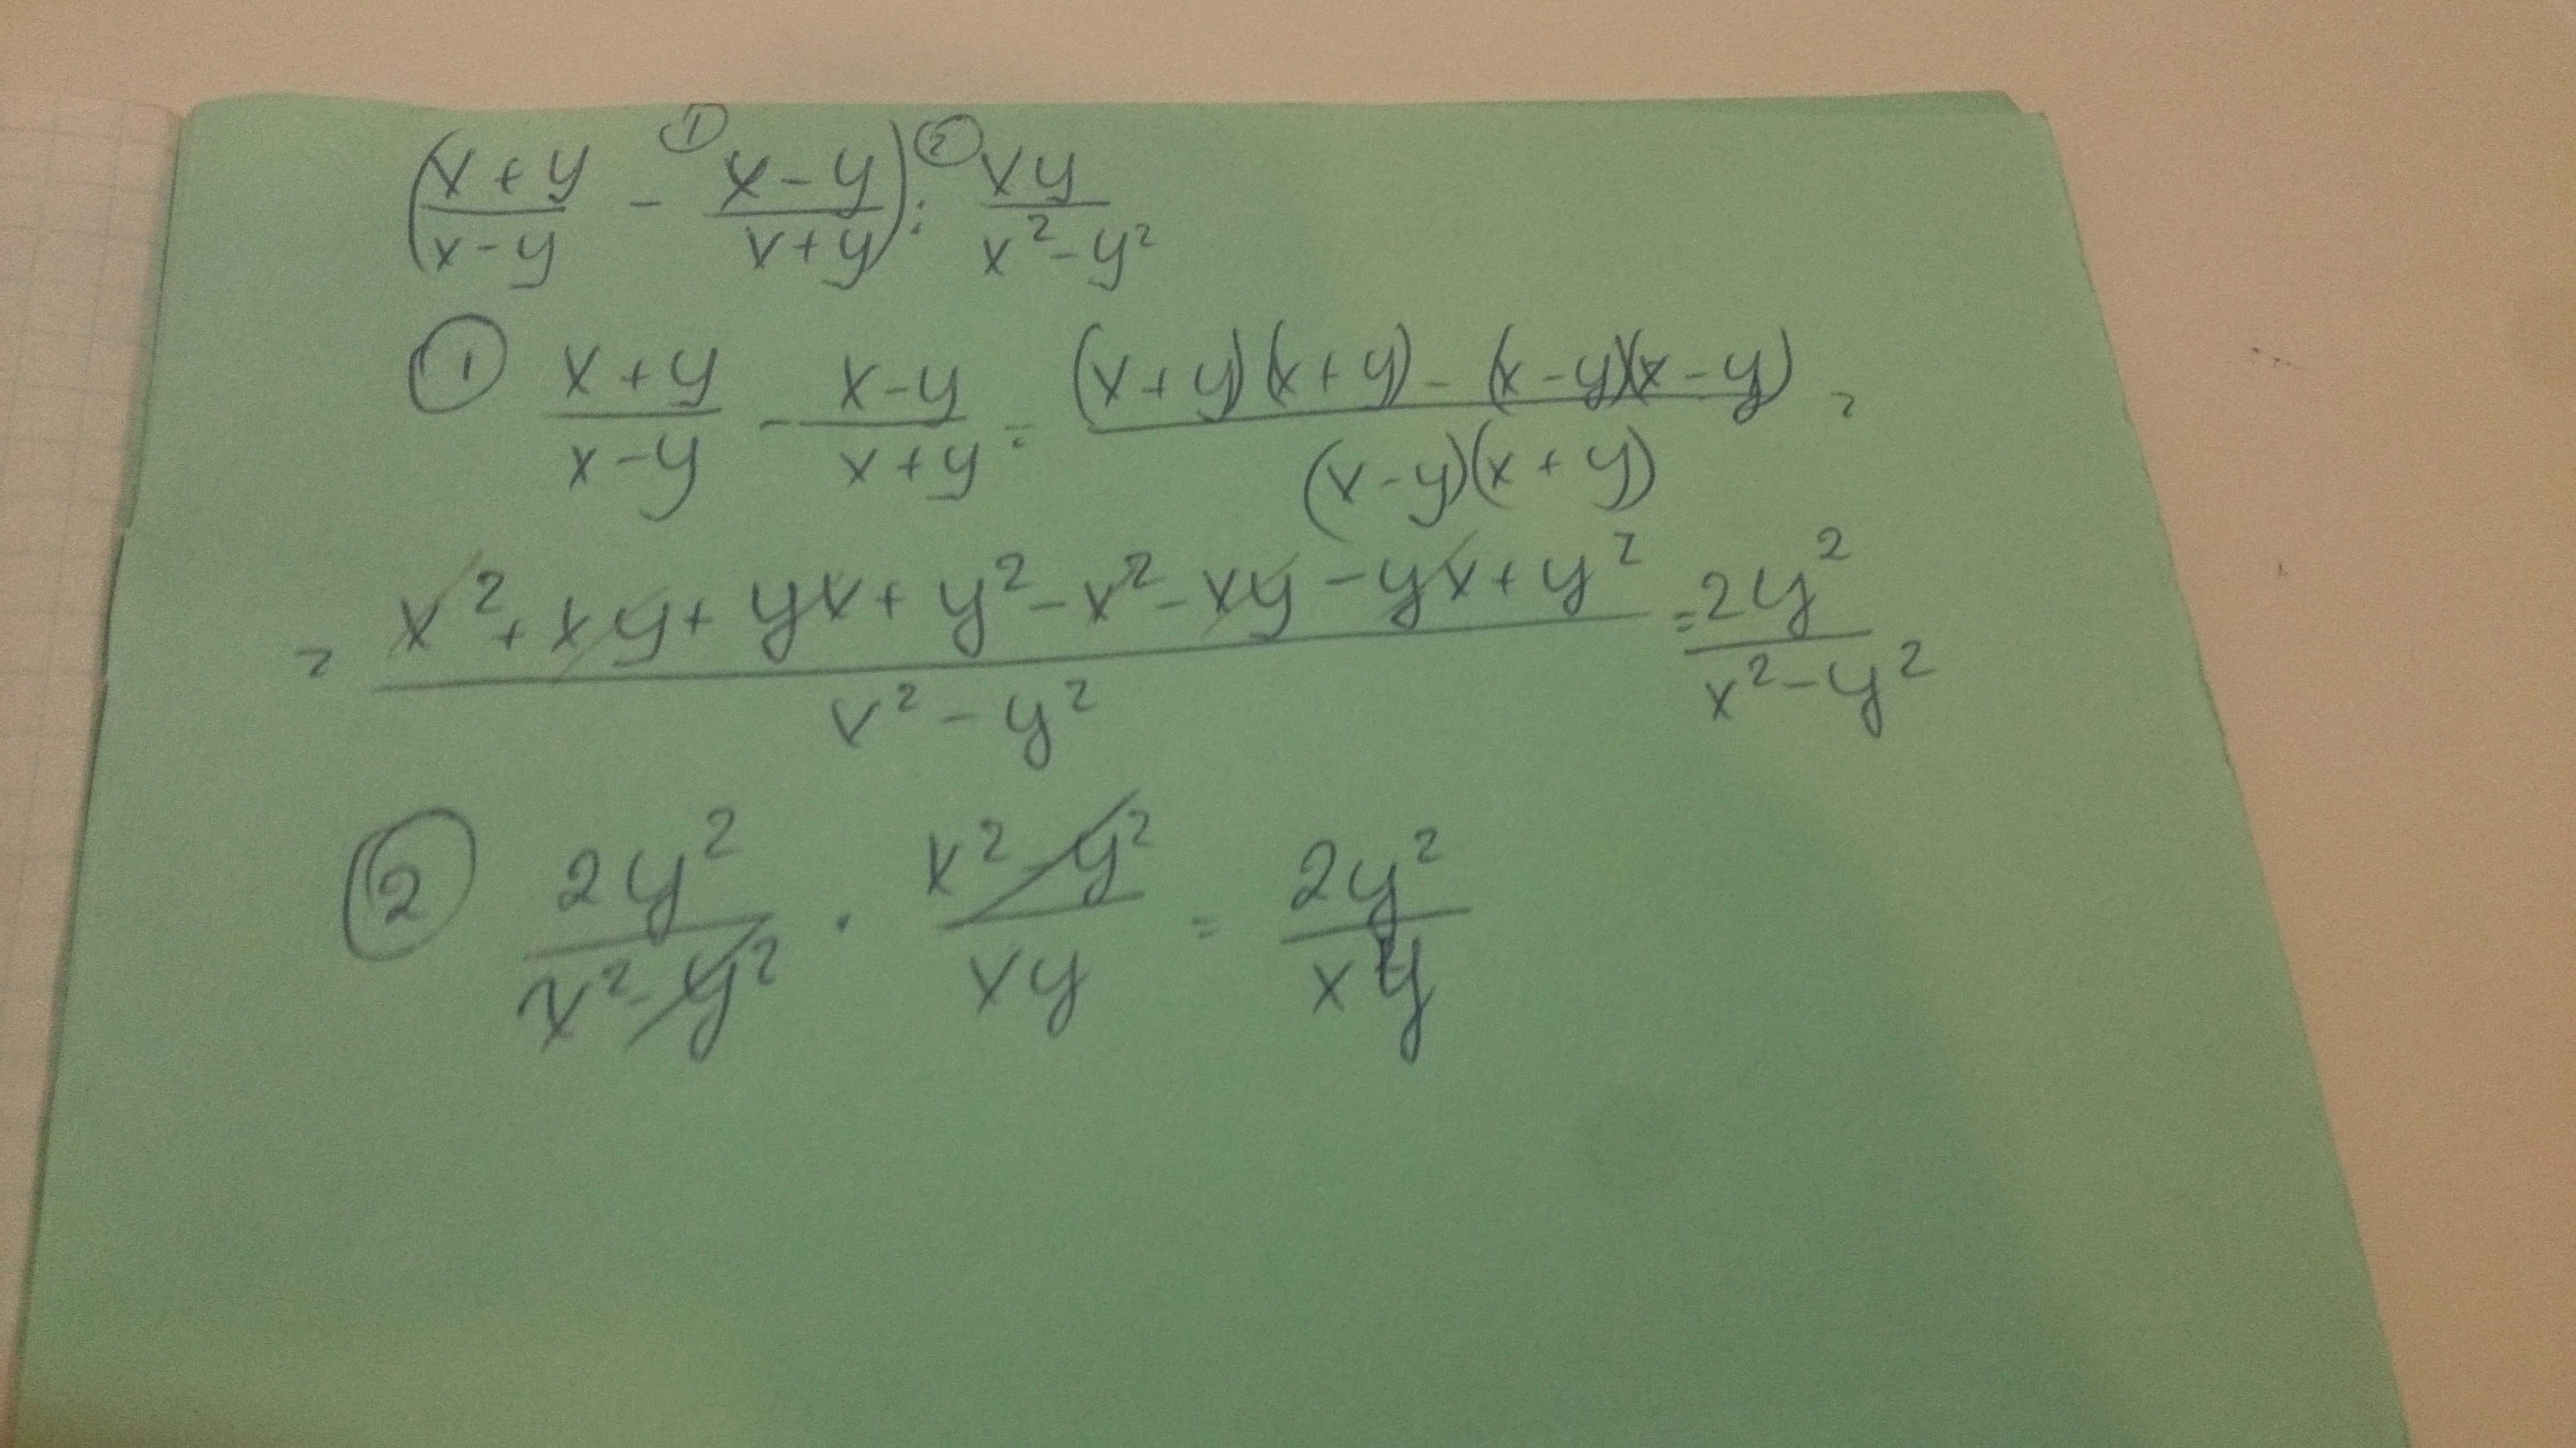 ① ②
(x+y/x-y - x-y/x+y) : xy/x²-y²
① x+y/x-y - x-y/x+y = (x+y)(x+y) - (x-y)(x-y)/(x-y)(x+y) =
= x²+xy+yx+y²-x²-xy-yx+y²/x²-y² = 2y²/x²-y²
② 2y²/x²-y² · x²-y²/xy = 2y²/xy